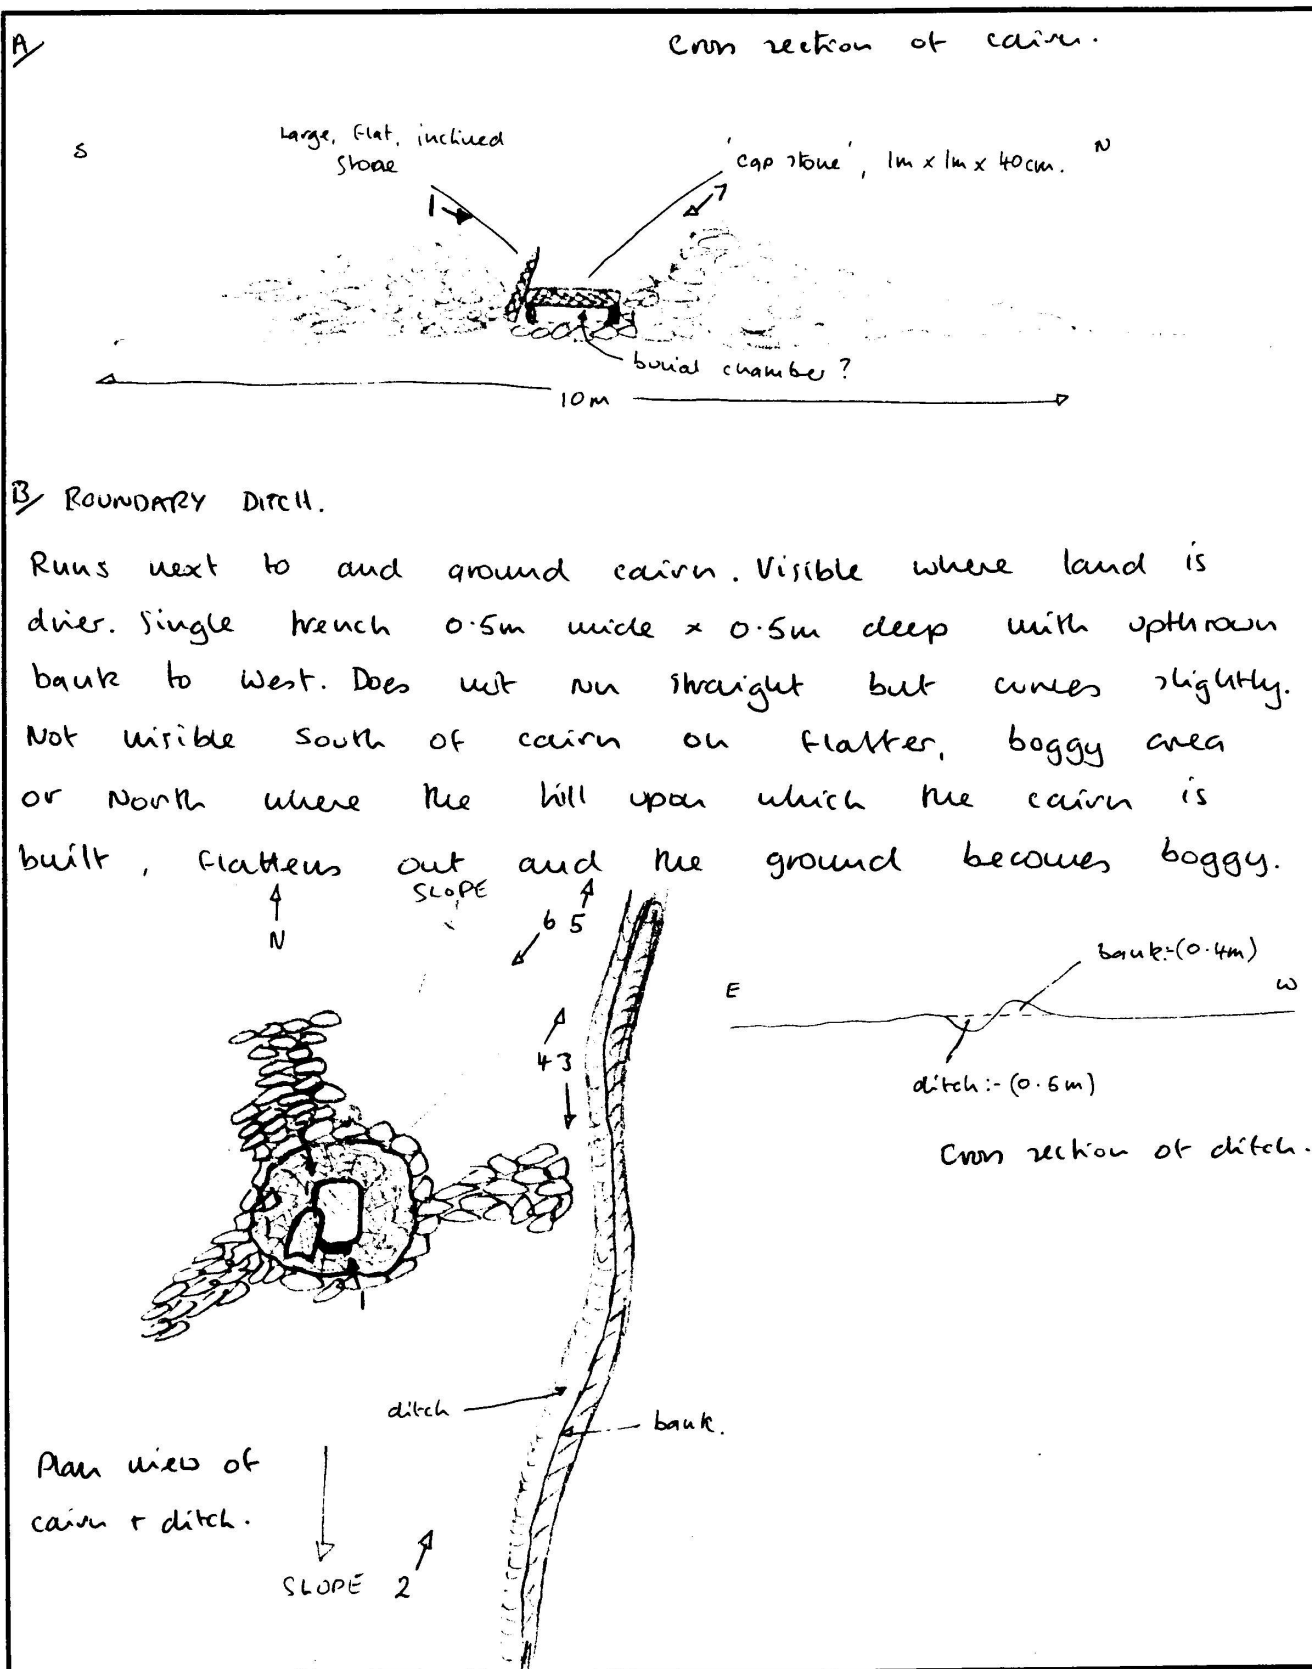 A/
Cross section of cairn.
S
Large, flat, inclined
stone
'cap stone', 1m x 1m x 40cm.
N
1
7
burial chamber?
10m
B/ BOUNDARY DITCH.
Runs next to and around cairn. Visible where land is
drier. Single trench 0.5m wide x 0.5m deep with upthrown
bank to West. Does not run straight but curves slightly.
Not visible South of cairn on flatter, boggy area
or North where the hill upon which the cairn is
built, flattens out and the ground becomes boggy.
SLOPE
N
6 5
bank:-(0.4m)
E
W
4 3
ditch:-(0.5m)
Cross section of ditch.
1
ditch
bank.
Plan view of
cairn + ditch.
SLOPE 2